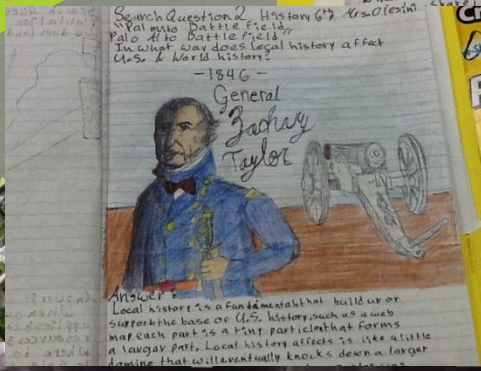 Search Question 2 History 6th Mrs. Olesini
"Palmito Battle Field"
Palo Alto Battle Field"
In what way does local history affect
U.S. & World history?
-1846-
General
Zachary
Taylor
Answer:
Local history is a fundamental that build up or
support the base of U.S. history, such as a web
map each part is a tiny particle that forms
a larger part. Local history affects is like a little
domino that will eventually knocks down a larger